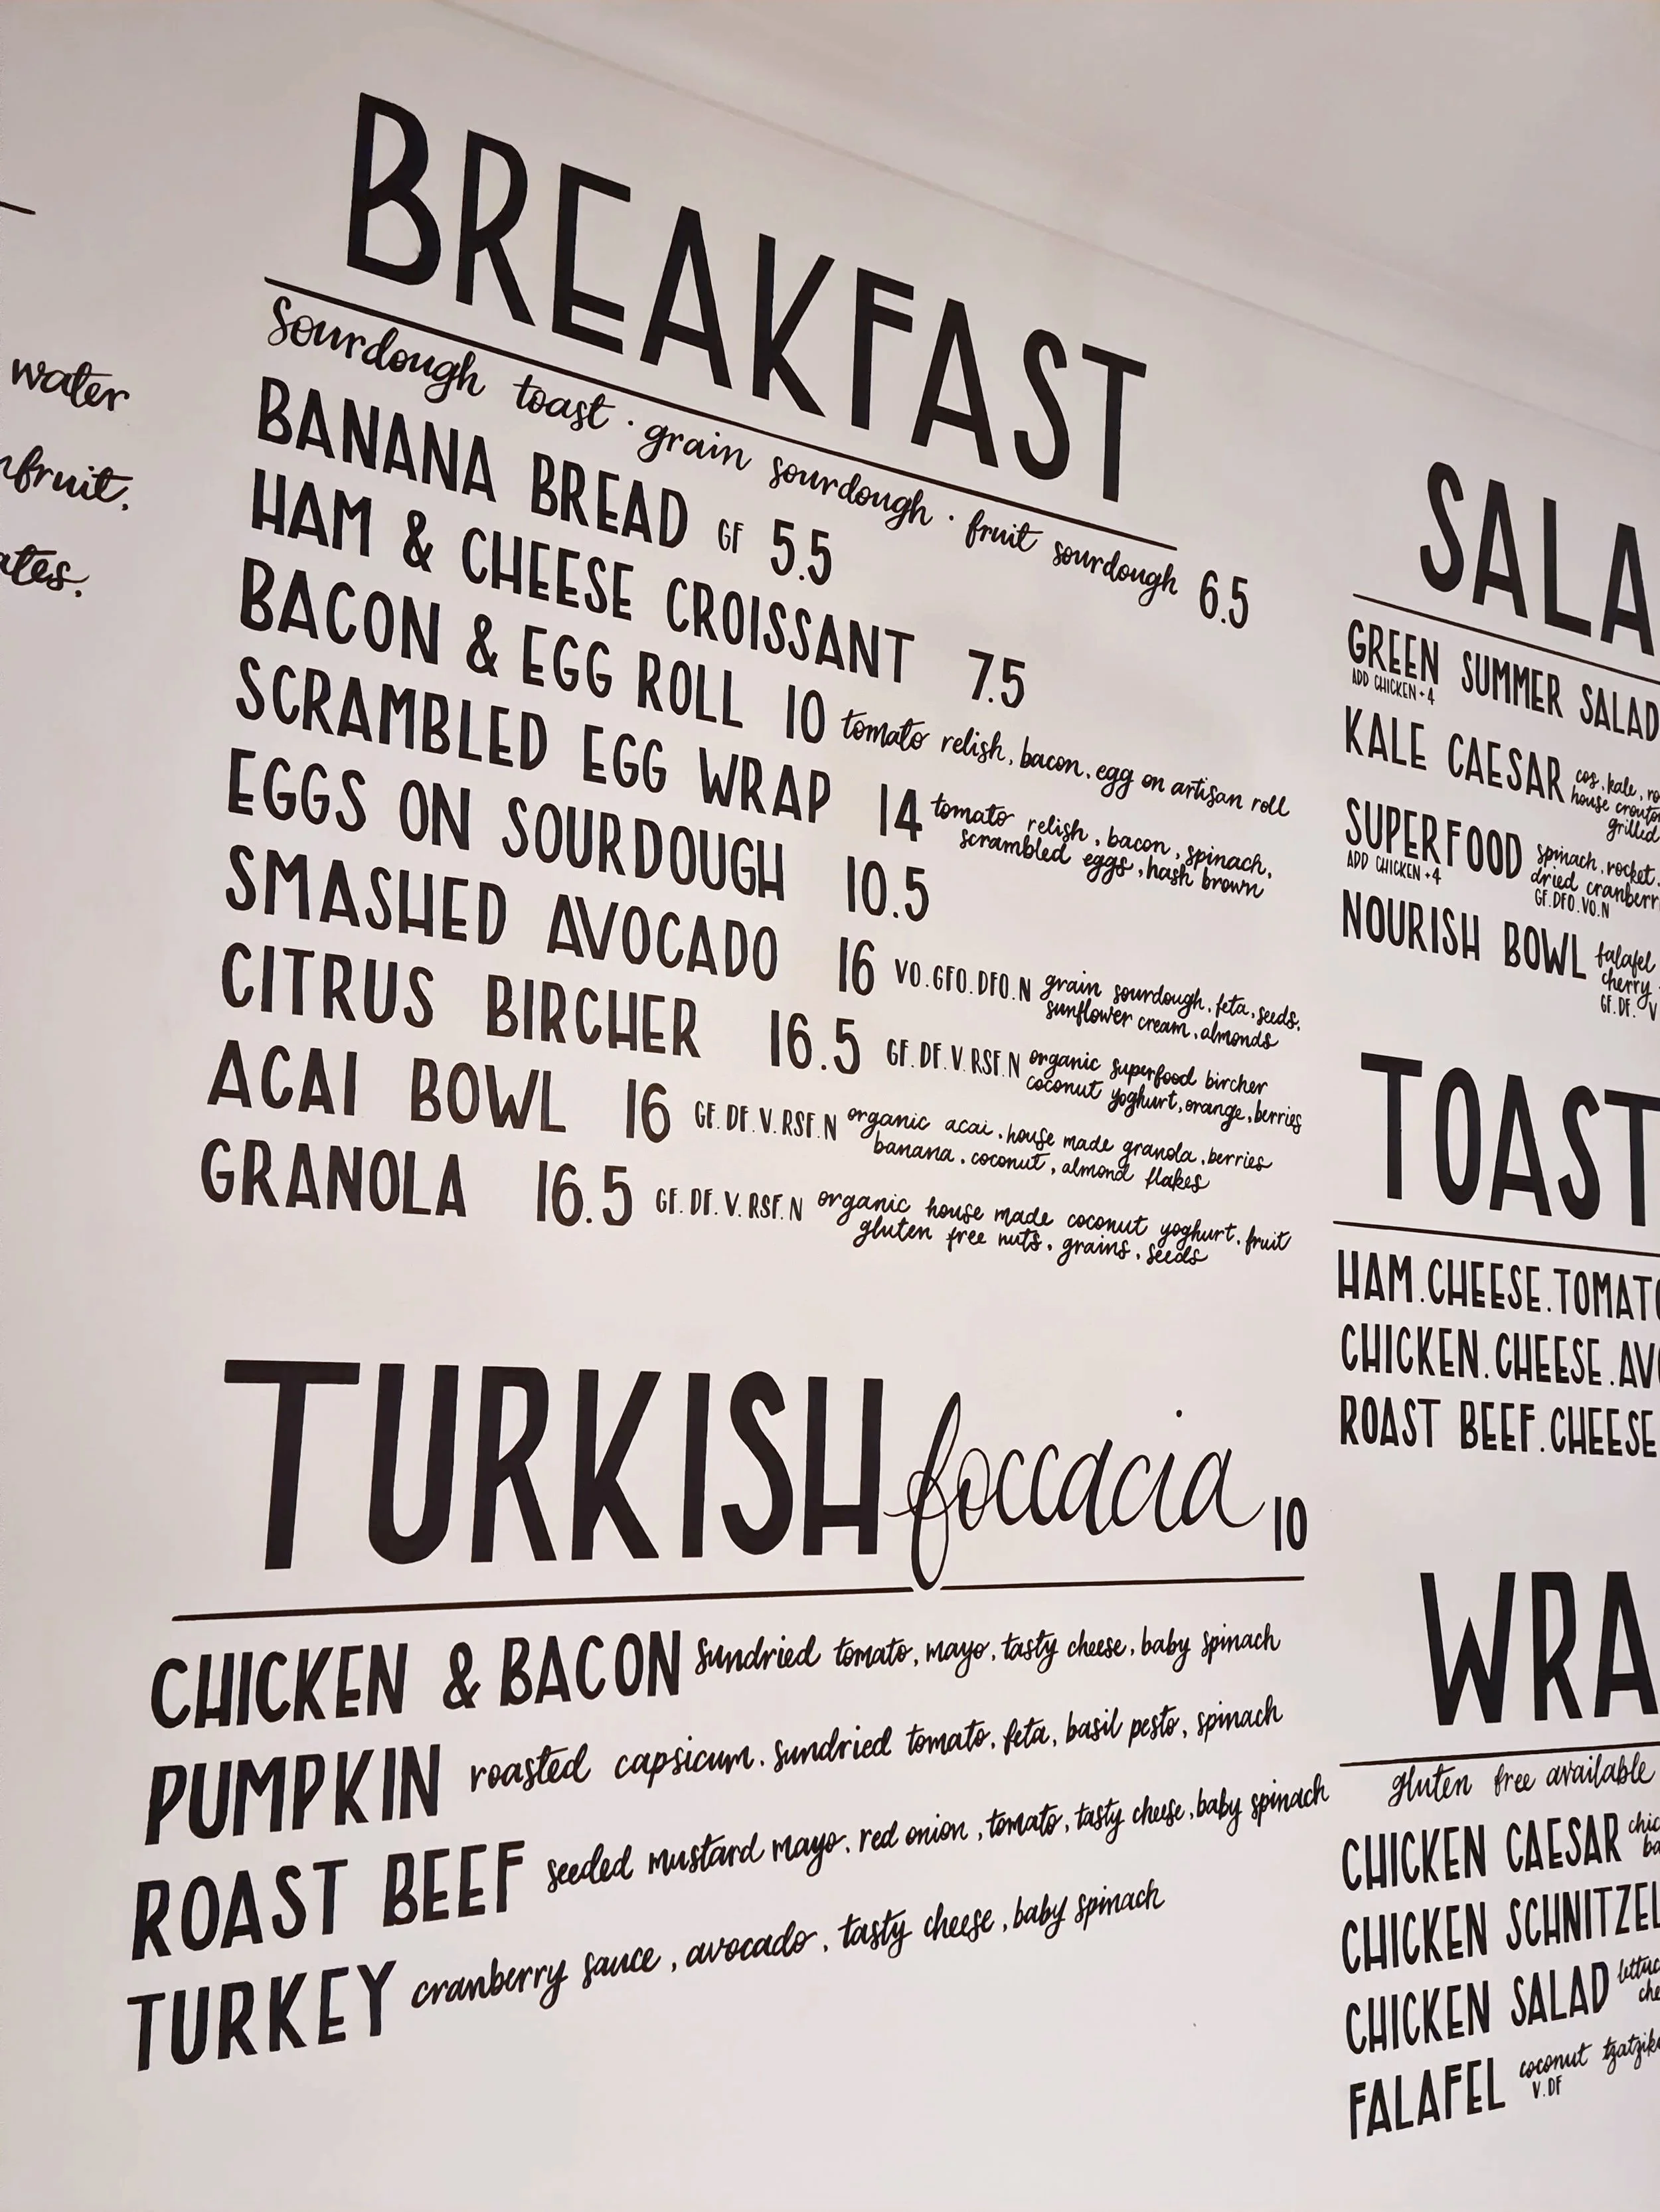 water
nfruit.
ates.
BREAKFAST
Sourdough toast · grain sourdough · fruit sourdough 6.5
BANANA BREAD GF 5.5
HAM & CHEESE CROISSANT 7.5
BACON & EGG ROLL 10 tomato relish, bacon, egg on artisan roll
SCRAMBLED EGG WRAP 14 tomato relish, bacon, spinach,
scrambled eggs, hash brown
EGGS ON SOURDOUGH 10.5
SMASHED AVOCADO 16 VO.GFO.DFO.N grain sourdough, feta, seeds,
sunflower cream, almonds
CITRUS BIRCHER 16.5 GF.DF.V.RSF.N organic superfood bircher
coconut yoghurt, orange, berries
ACAI BOWL 16 GF.DF.V.RSF.N organic acai, house made granola, berries
banana, coconut, almond flakes
GRANOLA 16.5 GF.DF.V.RSF.N organic house made coconut yoghurt, fruit
gluten free nuts, grains, seeds
TURKISH foccacia 10
CHICKEN & BACON sundried tomato, mayo, tasty cheese, baby spinach
PUMPKIN roasted capsicum, sundried tomato, feta, basil pesto, spinach
ROAST BEEF seeded mustard mayo, red onion, tomato, tasty cheese, baby spinach
TURKEY cranberry sauce, avocado, tasty cheese, baby spinach
SALA
GREEN SUMMER SALAD
ADD CHICKEN +4
KALE CAESAR cos, kale, ro
house crouto
grilled
SUPERFOOD spinach, rocket,
ADD CHICKEN +4
dried cranberr
GF.DFO.VO.N
NOURISH BOWL falafel
cherry
GF.DF.V
TOAST
HAM.CHEESE.TOMATO
CHICKEN.CHEESE.AVO
ROAST BEEF.CHEESE
WRA
gluten free available
CHICKEN CAESAR chic
ba
CHICKEN SCHNITZEL
CHICKEN SALAD lettuc
che
FALAFEL coconut tzatziki
V.DF